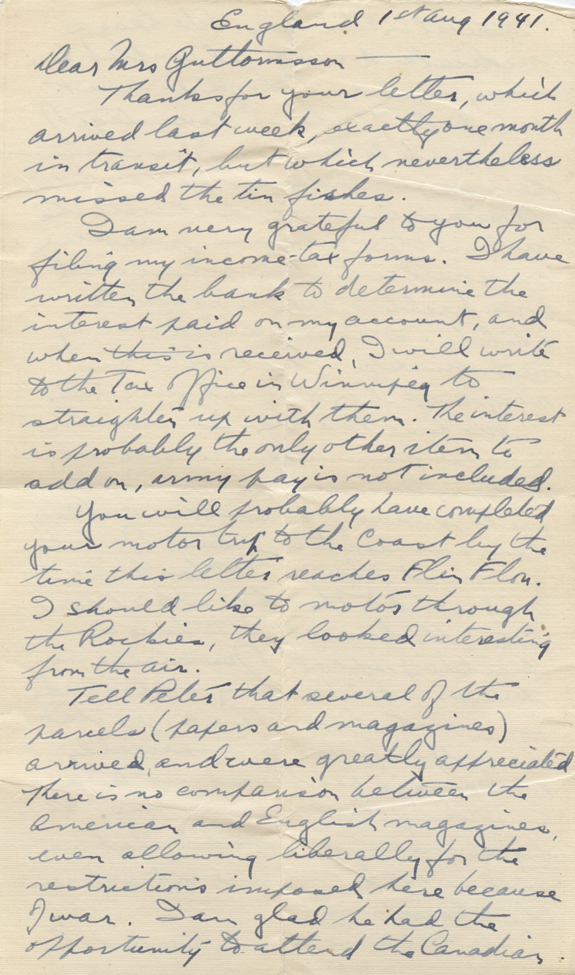 England 1st Aug 1941.
Dear Mrs Guttormsson
Thanks for your letter, which
arrived last week, exactly one month
in transit, but which nevertheless
missed the tin fishes.
I am very grateful to you for
filing my income-tax forms. I have
written the bank to determine the
interest paid on my account, and
when this is received, I will write
to the Tax Office in Winnipeg to
straighten up with them. The interest
is probably the only other item to
add on, army pay is not included.
You will probably have completed
your motor trip to the Coast by the
time this letter reaches Flin Flon.
I should like to motor through
the Rockies, they looked interesting
from the air.
Tell Peter that several of the
parcels (papers and magazines)
arrived, and were greatly appreciated
There is no comparison between the
American and English magazines,
even allowing liberally for the
restrictions imposed here because
of war. I am glad he had the
opportunity to attend the Canadian